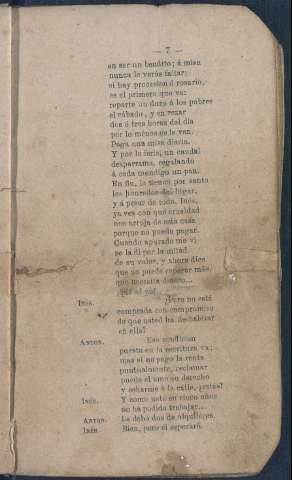 — 7 —
en ser un bendito; á misa
nunca le verás faltar;
si hay procesion ó rosario,
es el primero que va;
reparte un duro á los pobres
el sábado, y en rezar
dos ó tres horas del dia
por lo ménos se le van.
Paga una misa diaria.
Y por la feria, un caudal
desparrama, regalando
á cada mendigo un pan.
En fin, le tienen por santo
los honrados del lugar,
y á pesar de todo, Inés,
ya ves con qué crueldad
nos arroja de esta casa
porque no puedo pagar.
Cuando apurado me vi
se la di por la mitad
de su valor, y ahora dice
que no puede esperar más,
que necesita dinero...
INÉS. ¿Pero no está
comprada con compromiso
de que usted ha de habitar
en ella?
ANTON. Esa condicion
puesta en la escritura va;
mas si no pago la renta
puntualmente, reclamar
puede el amo su derecho
y echarme á la calle, ¿estás?
INÉS. Y como usté en cinco años
no ha podido trabajar...
ANTON. Le debo dos de alquileres.
INÉS. Bien, pero él esperará.